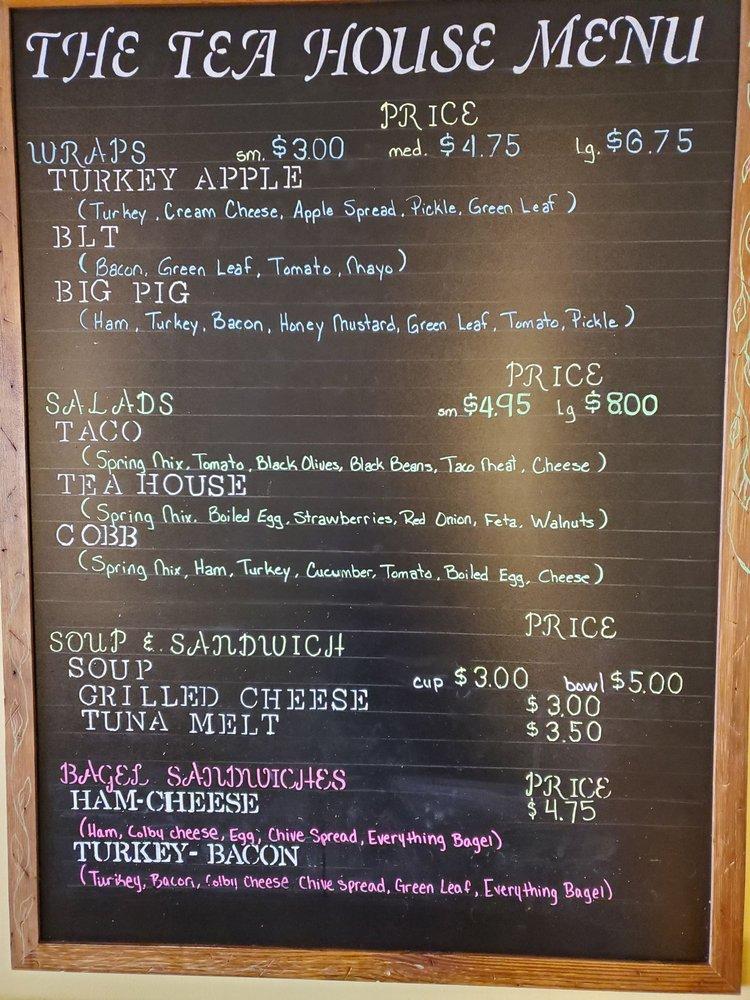 THE TEA HOUSE MENU
PRICE
WRAPS sm. $3.00 med. $4.75 lg. $6.75
TURKEY APPLE
(Turkey, Cream Cheese, Apple Spread, Pickle, Green Leaf)
BLT
(Bacon, Green Leaf, Tomato, Mayo)
BIG PIG
(Ham, Turkey, Bacon, Honey Mustard, Green Leaf, Tomato, Pickle)
PRICE
SALADS sm $4.95 lg $8.00
TACO
(Spring Mix, Tomato, Black Olives, Black Beans, Taco Meat, Cheese)
TEA HOUSE
(Spring Mix, Boiled Egg, Strawberries, Red Onion, Feta, Walnuts)
COBB
(Spring Mix, Ham, Turkey, Cucumber, Tomato, Boiled Egg, Cheese)
PRICE
SOUP & SANDWICH
SOUP cup $3.00 bowl $5.00
GRILLED CHEESE $3.00
TUNA MELT $3.50
BAGEL SANDWICHES PRICE
HAM-CHEESE $4.75
(Ham, Colby cheese, Egg, Chive Spread, Everything Bagel)
TURKEY-BACON
(Turkey, Bacon, Colby Cheese Chive Spread, Green Leaf, Everything Bagel)